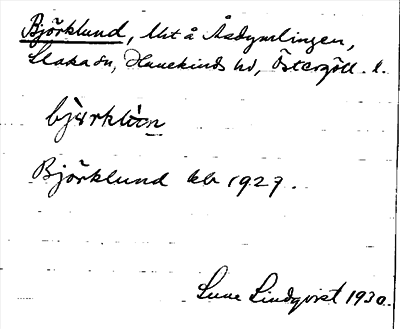 Björklund, Utt å Åsdymlingen,
Slaka sn, Hanekinds hd, Östergötl. l.
Björklund kb 1927.
Sune Lindqvist 1930.